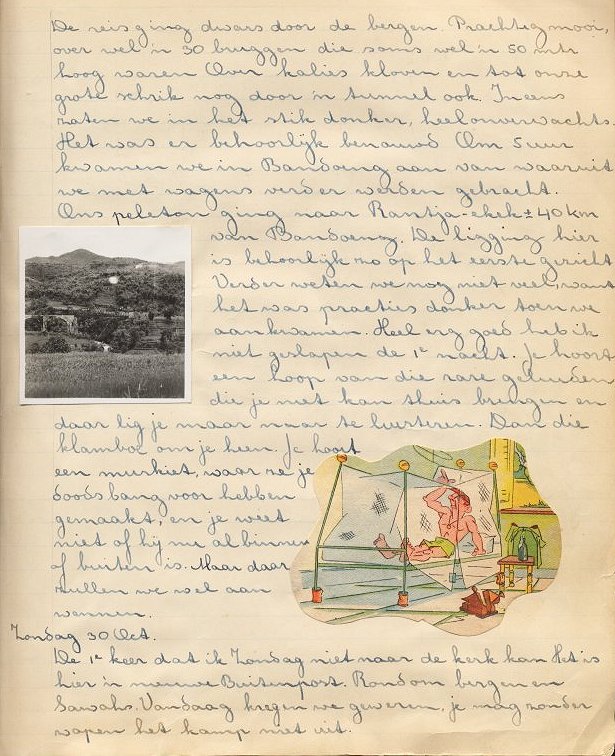 De reis ging dwars door de bergen. Prachtig mooi,
over wel 'n 30 bruggen die soms wel 'n 50 mtr
hoog waren Over kalies kloven en tot onze
grote schrik nog door 'n tunnel ook. Ineens
zaten we in het stik donker, heel onverwachts.
Het was er behoorlijk benauwd Om 5 uur
kwamen we in Bandoeng aan van waaruit
we met wagens verder werden gebracht.
Ons peleton ging naar Rantja-ekek ± 40 km
van Bandoeng. De ligging hier
is behoorlijk zo op het eerste gezicht
Verder weten we nog niet veel, want
het was practies donker toen we
aankwamen. Heel erg goed heb ik
niet geslapen de 1e nacht. Je hoort
een hoop van die rare geluiden
die je niet kan thuis brengen en
daar lig je maar naar te luisteren. Dan die
klamboe om je heen. Je hoort
een muskiet, waar ze je
doods bang voor hebben
gemaakt, en je weet
niet of hij nu al binnen
of buiten is. Maar daar
zullen we wel aan
wennen.
Zondag 30 Oct.
De 1e keer dat ik Zondag niet naar de kerk kan Het is
hier 'n nieuwe Buitenpost. Rondom bergen en
Sawahs. Vandaag kregen we geweren, je mag zonder
wapen het kamp niet uit.